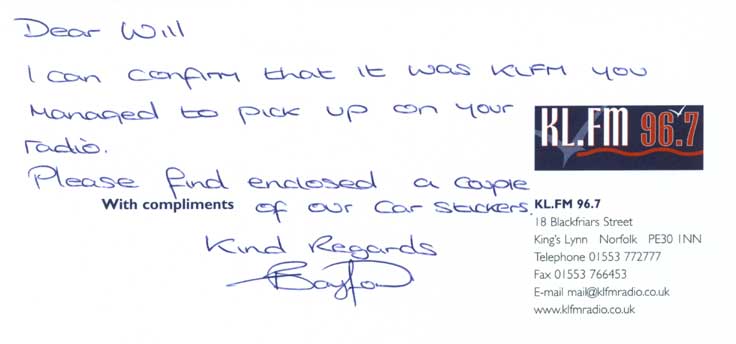 Dear Will
I can confirm that it was KLFM you
managed to pick up on your
radio.
Please find enclosed a couple
of our car stickers.
Kind Regards
With compliments
KL.FM 96.7
KL.FM 96.7
18 Blackfriars Street
King's Lynn Norfolk PE30 1NN
Telephone 01553 772777
Fax 01553 766453
E-mail mail@klfmradio.co.uk
www.klfmradio.co.uk